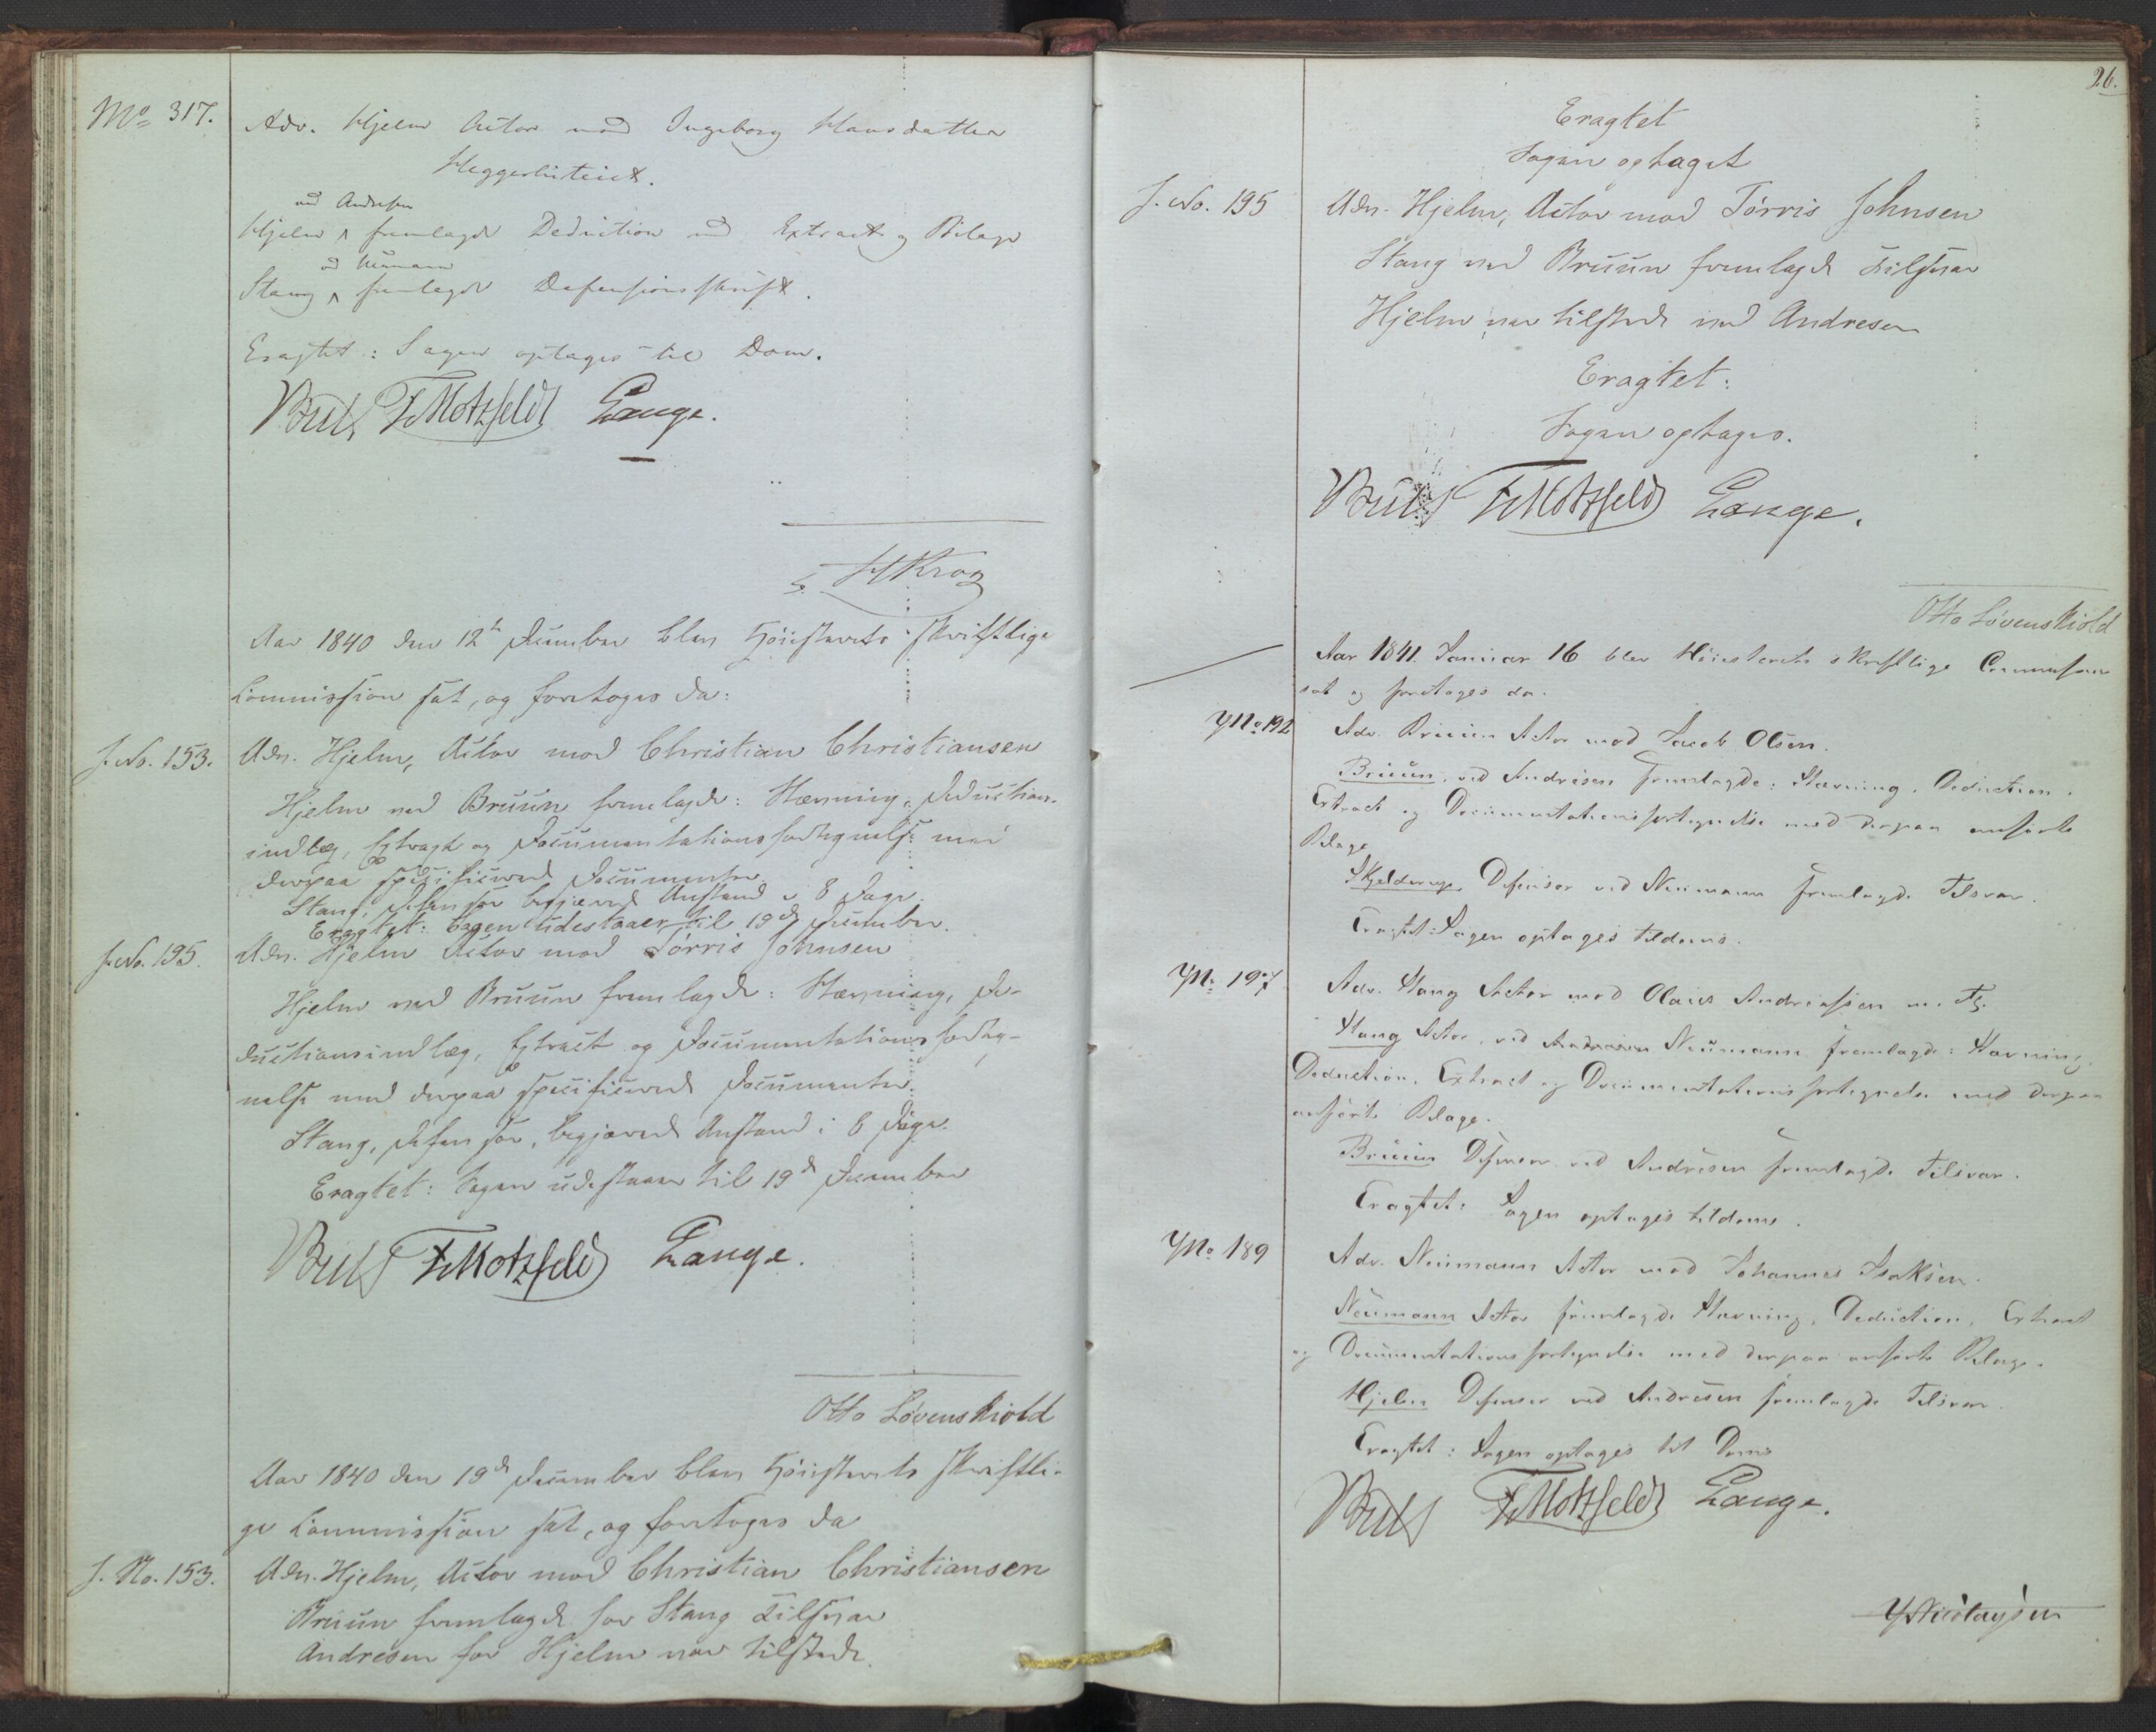 No 317.
Adv. Hjelm Actor mod Ingeborg Hansdatter
Heggerhuteiet.
ved Andresen
Hjelm fremlagde Deduction med Extract og Bilage
ved Neumann
Stang fremlagde Defensionsskrift.
Eragtet: Sagen optages til Dom.
Bull FMotzfeldt Lange.
HKrog
Aar 1840 den 12te December blev Höiesterets skriftlige
Commission sat, og foretoges da:
J. No. 153.
Adv. Hjelm, Actor mod Christian Christiansen
Hjelm ved Bruun fremlagde: Stævning, Deductions-
indlæg, Extract og Documentationsfortegnelse med
derpaa specificerede Documenter
Stang, Defensor begjærede Anstand i 8 Dage.
Eragtet: Sagen udestaaer til 19de December.
J. No. 195.
Adv. Hjelm Actor mod Törris Johnsen
Hjelm ved Bruun fremlagde: Stævning, De-
ductionsindlæg, Extract og Documentationsforteg-
nelse med derpaa specificerede Documenter.
Stang, Defensor, begjærede Anstand i 8 Dage.
Eragtet: Sagen udestaaer til 19de December
Bull FMotzfeldt Lange.
Otto Lövenskiold
Aar 1840 den 19de December blev Höiesterets skriftli-
ge Commission sat, og foretoges da
J. No. 153.
Adv. Hjelm, Actor mod Christian Christiansen
Bruun fremlagde for Stang Tilsvar
Andresen for Hjelm var tilstede.
26.
Eragtet
Sagen optaget
J. No. 195
Adv. Hjelm, Actor mod Törris Johnsen
Stang ved Bruun fremlagde Tilsvar
Hjelm var tilstede ved Andresen
Eragtet:
Sagen optages.
Bull FMotzfeldt Lange.
Otto Lövenskiold
Aar 1841. Januar 16 blev Höiesterets skriftlige Commission
sat og foretoges da.
JNo 192
Adv. Bruun Actor mod Jacob Olsen.
Bruun, ved Andresen fremlagde: Stævning, Deduction,
Extract og Documentationsfortegnelse med derpaa anförte
Bilage
Skjelderup Defensor ved Neumann fremlagde Tilsvar.
Eragtet: Sagen optages tildoms.
JNo 197
Adv. Stang Actor mod Olaus Andreassen m. Fl.
Stang Actor, ved Andresen Neumann fremlagde: Stævning,
Deduction, Extract og Documentationsfortegnelse med derpaa
anförte Bilage.
Bruun Defensor ved Andresen fremlagde Tilsvar.
Eragtet: Sagen optages tildoms.
JNo 189
Adv. Neumann Actor mod Johannes Isaksen.
Neumann Actor fremlagde Stævning, Deduction, Extract
og Documentationsfortegnelse med derpaa anförte Bilage.
Hjelm Defensor ved Andresen fremlagde Tilsvar
Eragtet: Sagen optages til Doms
Bull FMotzfeldt Lange.
Nicolaysen